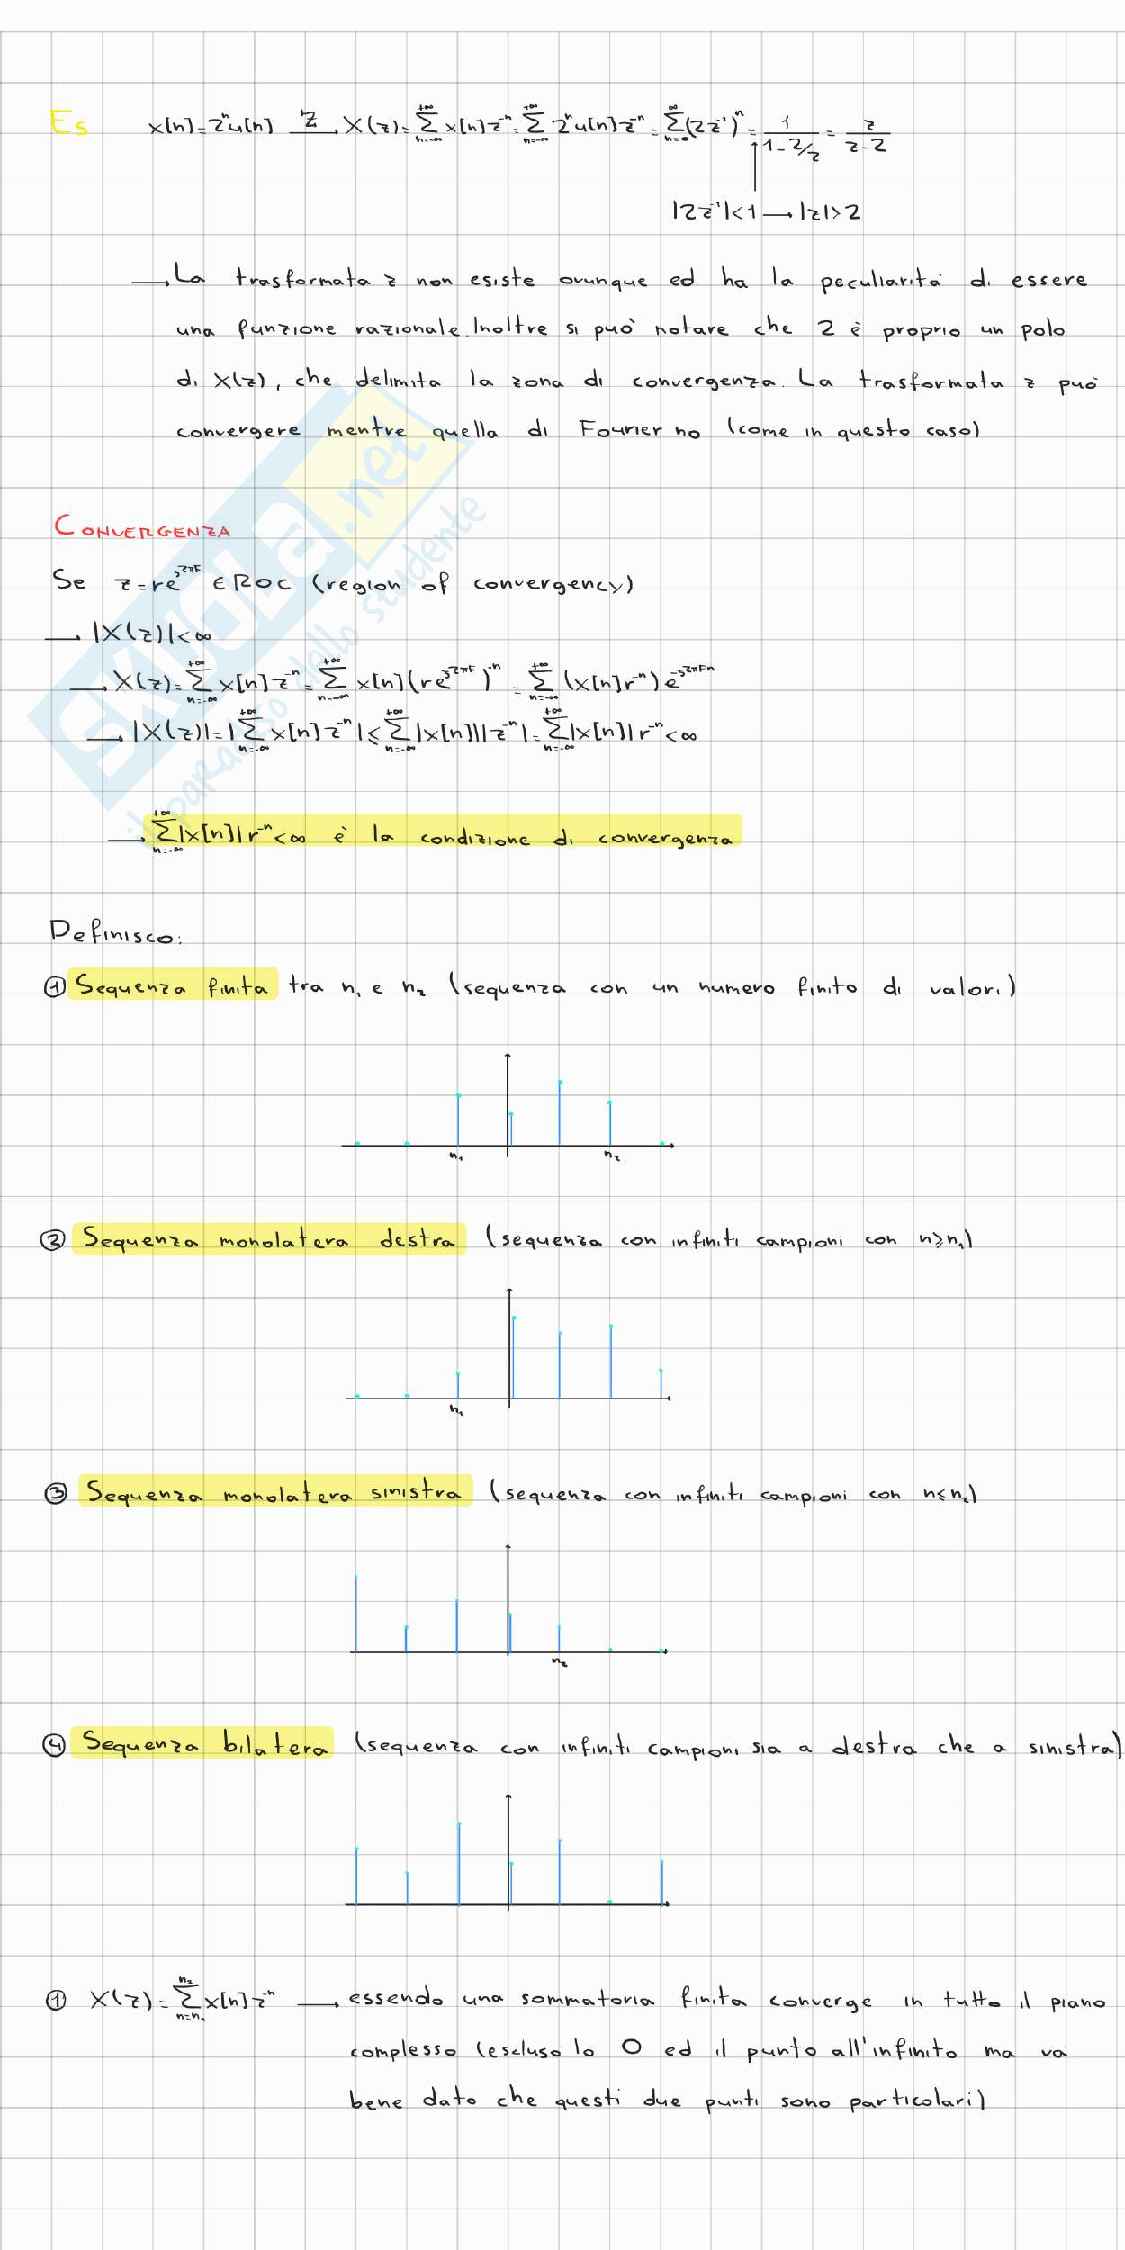 Es x[n]=2ⁿu[n] —Z→ X(z)=∑_{n=-∞}^{+∞} x[n]z⁻ⁿ = ∑_{n=-∞}^{+∞} 2ⁿu[n]z⁻ⁿ = ∑_{n=0}^{∞} (2z⁻¹)ⁿ = 1/(1-2/z) = z/(z-2)
|2z⁻¹|<1 → |z|>2
→ La trasformata z non esiste ovunque ed ha la peculiarità di essere
una funzione razionale. Inoltre si può notare che 2 è proprio un polo
di X(z), che delimita la zona di convergenza. La trasformata z può
convergere mentre quella di Fourier no (come in questo caso)
CONVERGENZA
Se z=re^{j2πF} ∈ ROC (region of convergency)
→ |X(z)|<∞
→ X(z)=∑_{n=-∞}^{+∞} x[n]z⁻ⁿ = ∑_{n=-∞}^{+∞} x[n](re^{j2πF})⁻ⁿ = ∑_{n=-∞}^{+∞} (x[n]r⁻ⁿ)e^{-j2πFn}
→ |X(z)|=|∑_{n=-∞}^{+∞} x[n]z⁻ⁿ| ≤ ∑_{n=-∞}^{+∞} |x[n]||z⁻ⁿ| = ∑_{n=-∞}^{+∞} |x[n]|r⁻ⁿ<∞
→ ∑_{n=-∞}^{+∞} |x[n]|r⁻ⁿ<∞ è la condizione di convergenza
Definisco:
① Sequenza finita tra n₁ e n₂ (sequenza con un numero finito di valori)
n₁ n₂
② Sequenza monolatera destra (sequenza con infiniti campioni con n≥n₁)
n₁
③ Sequenza monolatera sinistra (sequenza con infiniti campioni con n≤n₂)
n₂
④ Sequenza bilatera (sequenza con infiniti campioni sia a destra che a sinistra)
① X(z)=∑_{n=n₁}^{n₂} x[n]z⁻ⁿ → essendo una sommatoria finita converge in tutto il piano
complesso (escluso lo 0 ed il punto all'infinito ma va
bene dato che questi due punti sono particolari)
SKUOLA.net
il paradiso dello studente